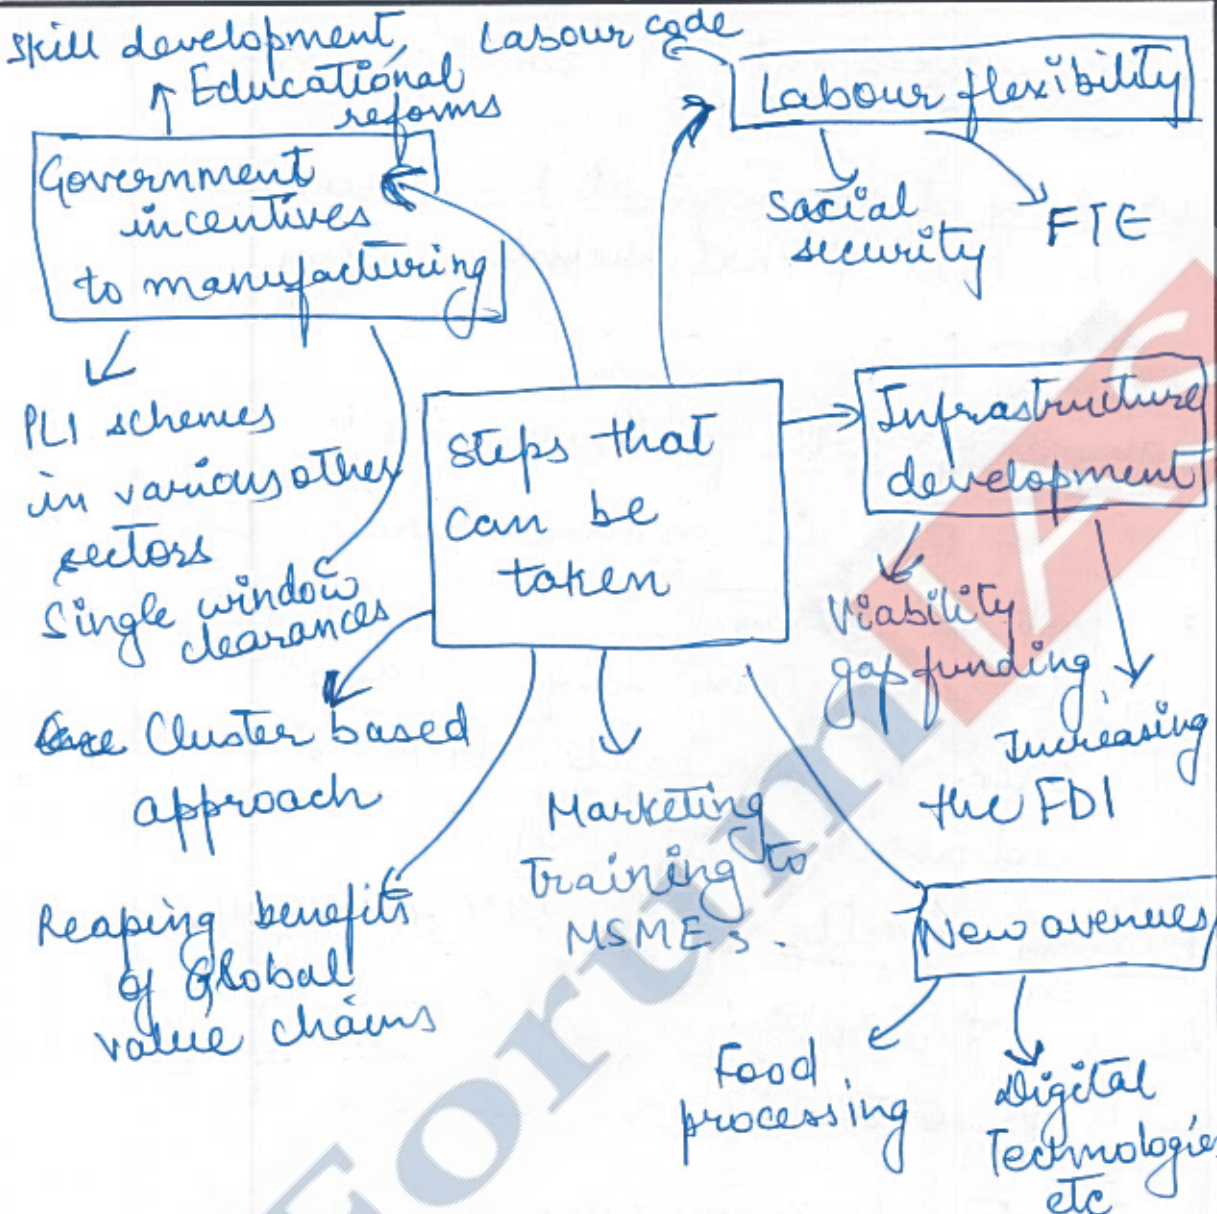 Skill development,
Educational
reforms
Labour code
Labour flexibility
Government
incentives
to manufacturing
Social
security
FTE
PLI schemes
in various other
sectors
Single window
clearances
Steps that
can be
taken
Infrastructure
development
Viability
gap funding
Increasing
the FDI
Cluster based
approach
Marketing
training to
MSMEs.
Reaping benefits
of Global
value chains
New avenues
Food
processing
Digital
Technologies
etc
ForumIAS